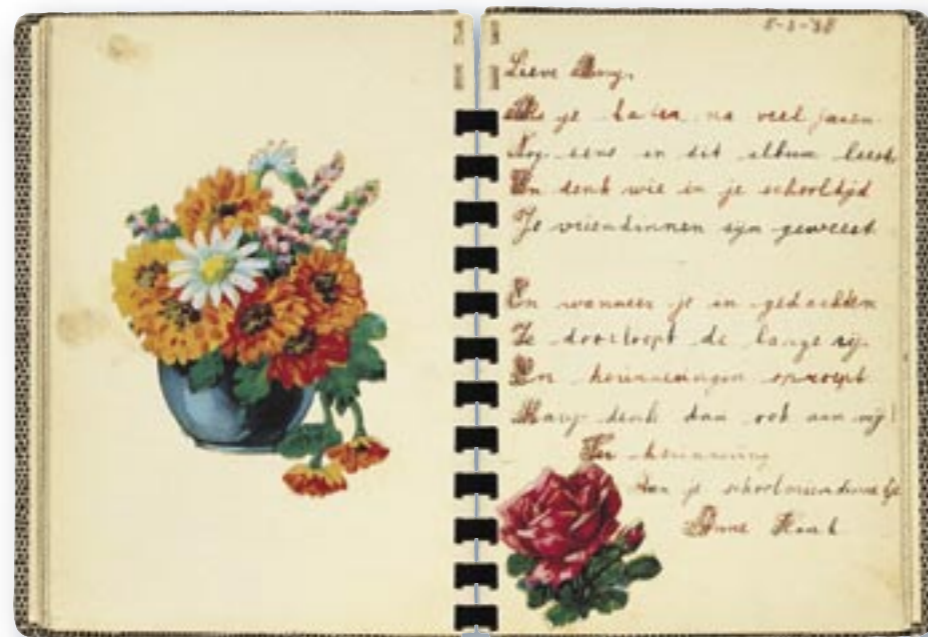 Lieve Mary,
Als je later na veel jaren
Nog eens in dit album leest
En denk wie in je schooltijd
Je vriendinnen zijn geweest
En wanneer je in gedachten
Ze doorloopt de lange rij
En herinneringen oproept
Mary denk dan ook aan mij!
Ter herinnering
Aan je schoolvriendinnetje
Anne